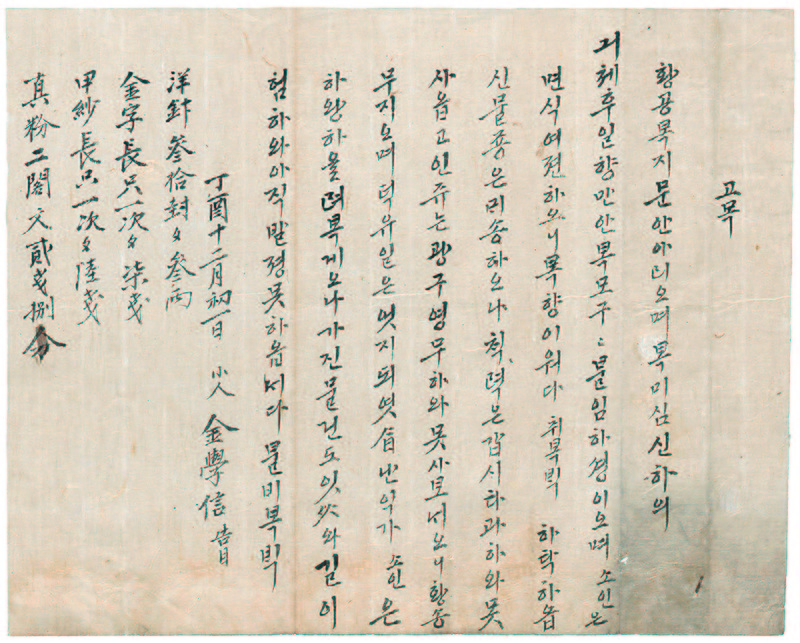 고목
황공복지문안아뢰오며복미심신하의
긔체후일향만안복모구〻믈임하셩이오며 소인은
면식여전하오니복향이워다 취복백 하탁하옵
신믈죵은긔송하오나 척녁은갑시타과하와못
사옵고인쥬는광구영무하와못사보내오니황송
무지오며 유일은엇지되엿 난익가 소인은
하완하올 복계오나가진믈건도잇 와길이
험하와아직발졍못하옵내다믈비복백
丁酉十二月初一日 小人 金學信 告目
洋針參拾封文參兩
金字長只一次文柒戔
甲紗長只一次文陸戔
真粉二閣文貳戔捌分